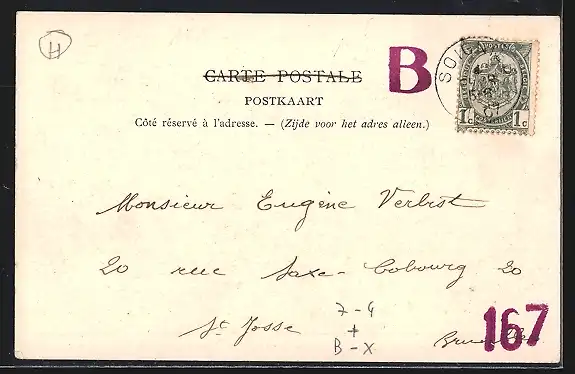 H
B
SOIG
CARTE POSTALE
POSTKAART
Côté réservé à l'adresse. — (Zijde voor het adres alleen.)
1c 1c
Monsieur Eugène Verbist
20 rue Saxe-Cobourg 20
St Josse
7-4
+
B-X
167